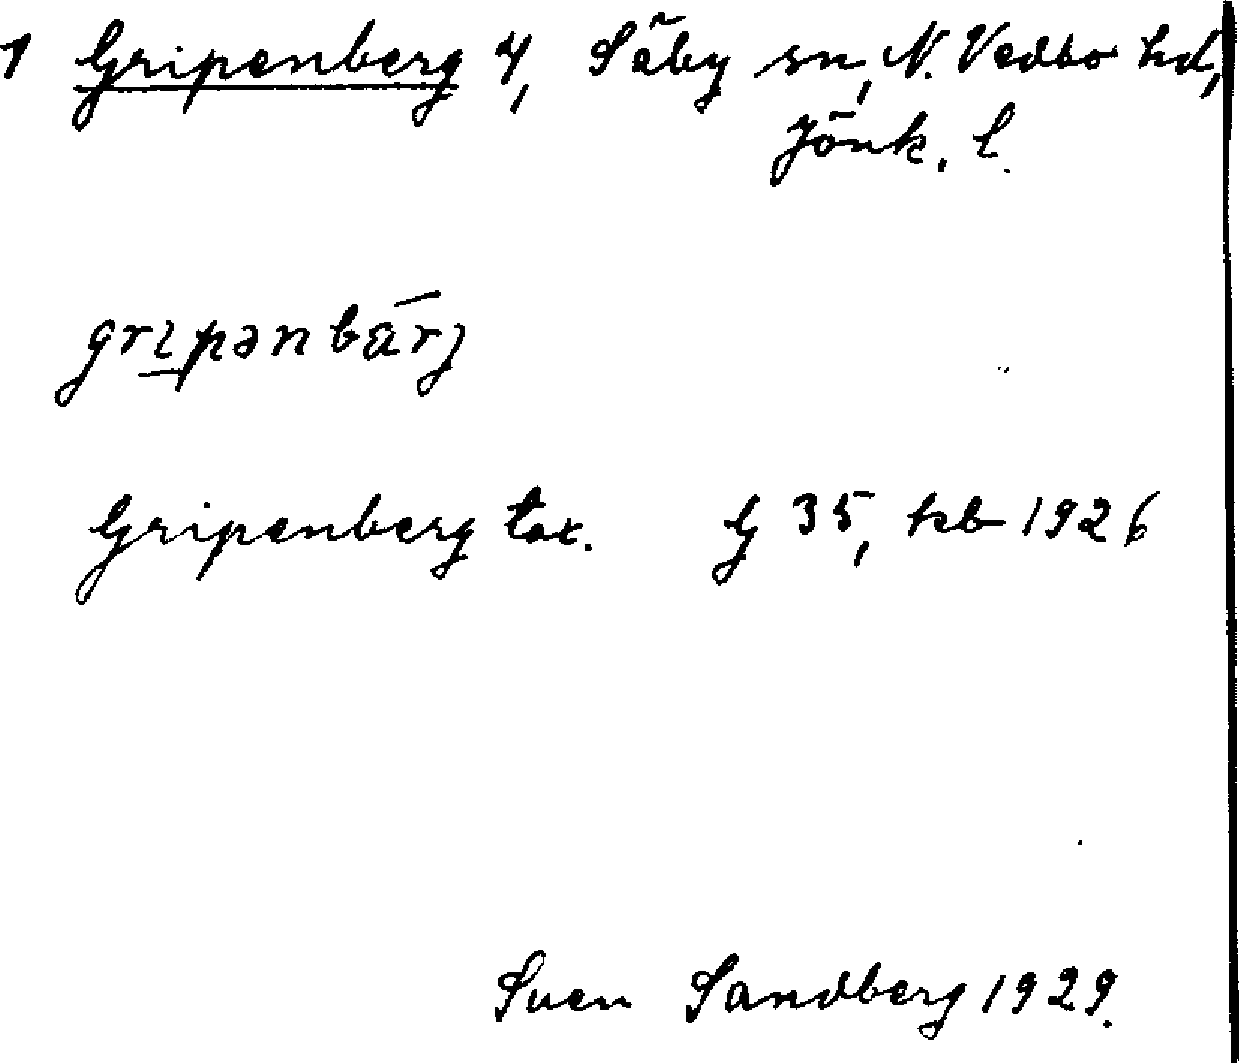 1 Gripenberg 4, Säby sn, N. Vedbo hd,
Jönk. l.
gripənbärj
Gripenberg tax. G 35, kb 1926
Sven Sandberg 1929.